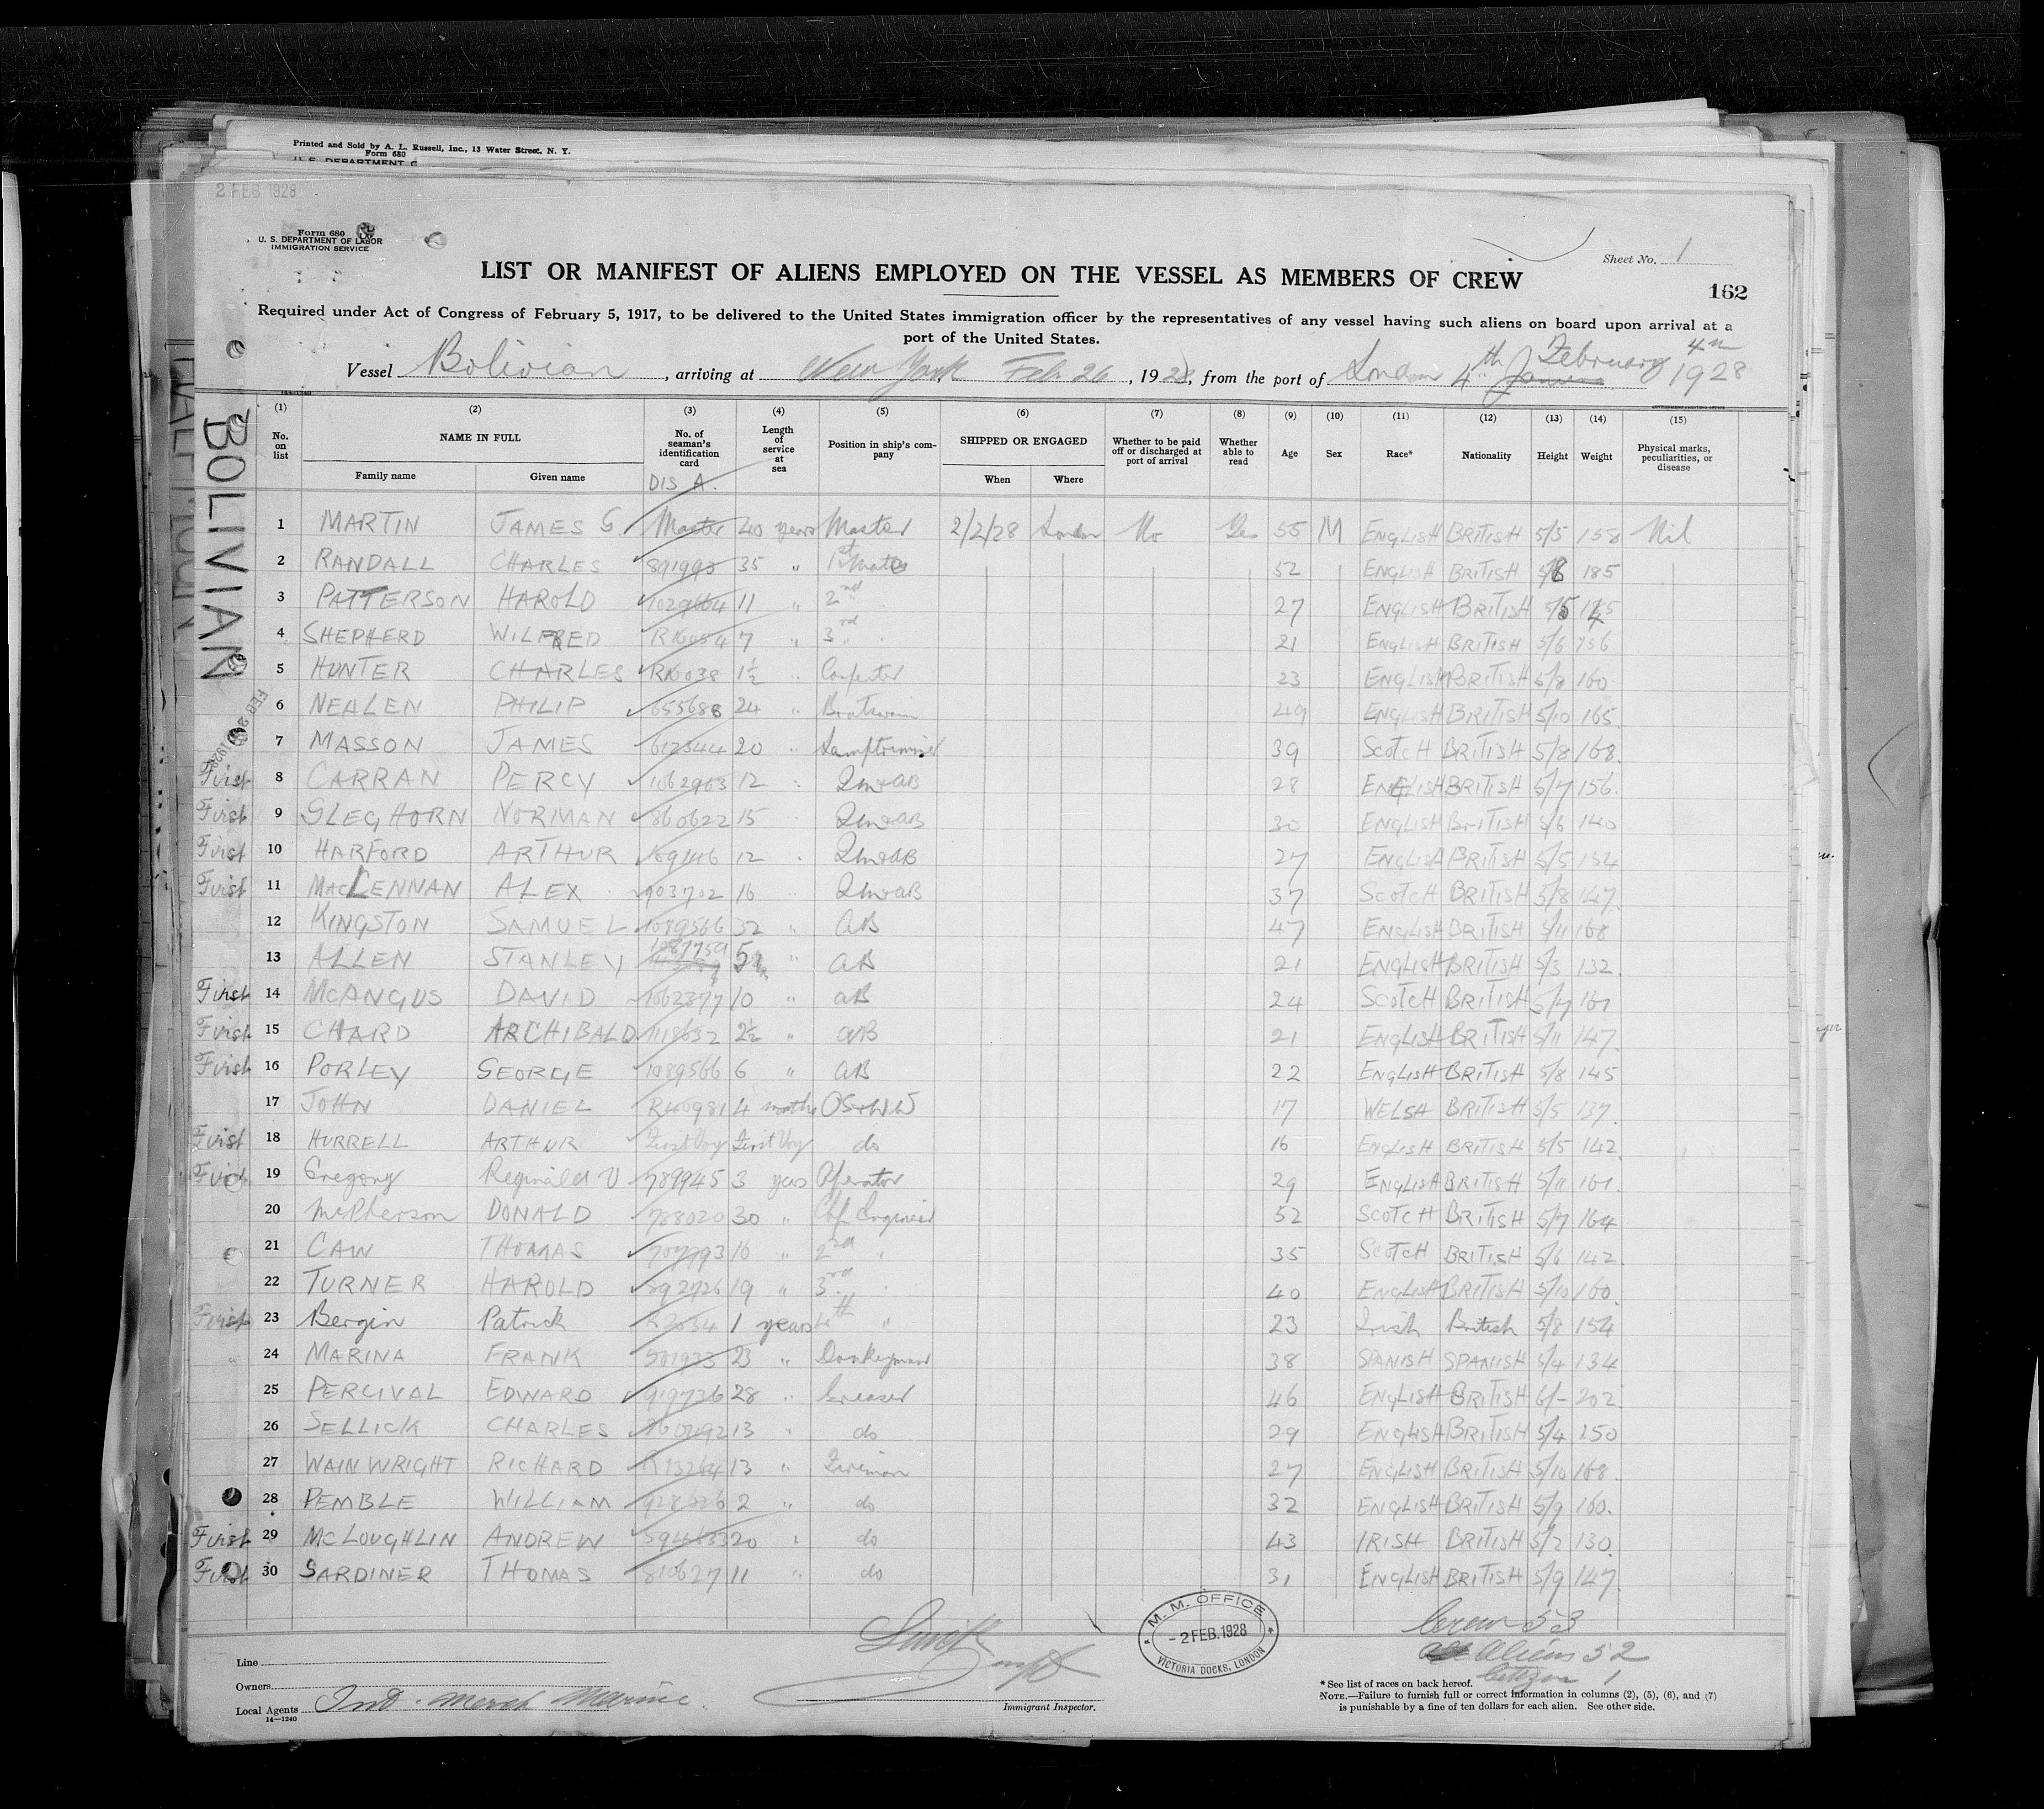 Printed and Sold by A. L. Russell, Inc., 13 Water Street, N. Y.
Form 680
U. S. DEPARTMENT
2 FEB 1928
Form 680
U. S. DEPARTMENT OF LABOR
IMMIGRATION SERVICE
Sheet No. 1
LIST OR MANIFEST OF ALIENS EMPLOYED ON THE VESSEL AS MEMBERS OF CREW
162
Required under Act of Congress of February 5, 1917, to be delivered to the United States immigration officer by the representatives of any vessel having such aliens on board upon arrival at a
port of the United States.
Vessel Bolivian, arriving at New York Feb 20, 1928, from the port of London 4th February 4th 1928
14-1240
BOLIVIAN
(1) (2) (3) (4) (5) (6) (7) (8) (9) (10) (11) (12) (13) (14) (15)
No. on list NAME IN FULL Family name Given name No. of seaman's identification card DIS A. Length of service at sea Position in ship's company SHIPPED OR ENGAGED When Where Whether to be paid off or discharged at port of arrival Whether able to read Age Sex Race* Nationality Height Weight Physical marks, peculiarities, or disease
1 MARTIN JAMES G. Master 40 years Master 2/2/28 London No Yes 55 M ENGLISH BRITISH 5/5 158 Nil
2 RANDALL CHARLES 891993 35 " 1st Mate 52 ENGLISH BRITISH 5/8 185
3 PATTERSON HAROLD 1029664 11 " 2nd " 27 ENGLISH BRITISH 5/5 145
4 SHEPHERD WILFRED 7 " 3rd " 21 ENGLISH BRITISH 5/6 156
5 HUNTER CHARLES 1½ " Carpenter 23 ENGLISH BRITISH 5/8 160
6 NEALEN PHILIP 655688 24 " Boatswain 49 ENGLISH BRITISH 5/10 165
7 MASSON JAMES 612344 20 " Lamptrimmer 39 SCOTCH BRITISH 5/8 168
First 8 CARRAN PERCY 1062903 12 " QM & AB 28 ENGLISH BRITISH 5/7 156
First 9 GLEGHORN NORMAN 860622 15 " QM & AB 30 ENGLISH BRITISH 5/6 140
First 10 HARFORD ARTHUR 12 " QM & AB 27 ENGLISH BRITISH 5/5 154
First 11 MACLENNAN ALEX 903702 16 " QM & AB 37 SCOTCH BRITISH 5/8 147
12 KINGSTON SAMUEL 1089566 32 " AB 47 ENGLISH BRITISH 5/11 168
13 ALLEN STANLEY 1087759 " AB 21 ENGLISH BRITISH 5/3 132
First 14 MCANGUS DAVID 1062377 10 " AB 24 SCOTCH BRITISH 5/7 161
First 15 CHARD ARCHIBALD 1118632 2½ " AB 21 ENGLISH BRITISH 5/11 147
First 16 PORLEY GEORGE 1089566 6 " AB 22 ENGLISH BRITISH 5/8 145
17 JOHN DANIEL R40981 4 months 17 WELSH BRITISH 5/5 137
First 18 HURRELL ARTHUR First Voy First Voy do 16 ENGLISH BRITISH 5/5 142
First 19 Gregory Reginald V 789945 3 years Operator 29 ENGLISH BRITISH 5/11 161
20 McPherson DONALD 788020 30 " Chf Engineer 52 SCOTCH BRITISH 5/7 164
21 CAW THOMAS 707793 16 " 2nd " 35 SCOTCH BRITISH 5/6 142
22 TURNER HAROLD 892726 19 " 3rd " 40 ENGLISH BRITISH 5/10 160
First 23 Bergin Patrick 1 years 4th " 23 Irish British 5/8 154
" 24 MARINA FRANK 501933 23 " Donkeyman 38 SPANISH SPANISH 5/4 134
25 PERCIVAL EDWARD 919736 28 " Greaser 46 ENGLISH BRITISH 6/- 202
26 SELLICK CHARLES 13 " do 29 ENGLISH BRITISH 5/4 150
27 WAINWRIGHT RICHARD R13264 13 " Fireman 27 ENGLISH BRITISH 5/10 168
28 PEMBLE WILLIAM 2 " do 32 ENGLISH BRITISH 5/9 160
First 29 MCLOUGHLIN ANDREW 20 " do 43 IRISH BRITISH 5/2 130
First 30 GARDINER THOMAS 810627 11 " do 31 ENGLISH BRITISH 5/9 147
M. M. OFFICE
- 2 FEB. 1928
VICTORIA DOCKS, LONDON
Crew 53
Aliens 52
Citizen 1
Line
Owners
Local Agents Int. Merch Marine.
14-1240
Immigrant Inspector.
* See list of races on back hereof.
NOTE.—Failure to furnish full or correct information in columns (2), (5), (6), and (7)
is punishable by a fine of ten dollars for each alien. See other side.